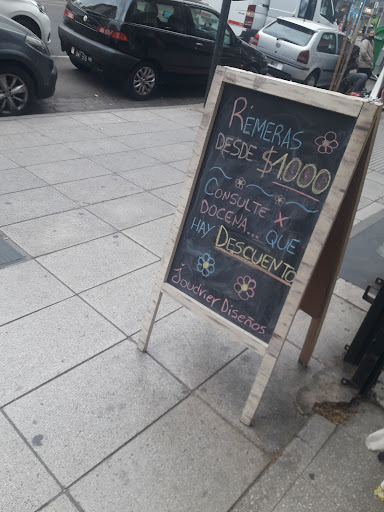 REMERAS
DESDE $1000
CONSULTE X
DOCENA... QUE
HAY DESCUENTO
Joudrier Diseños